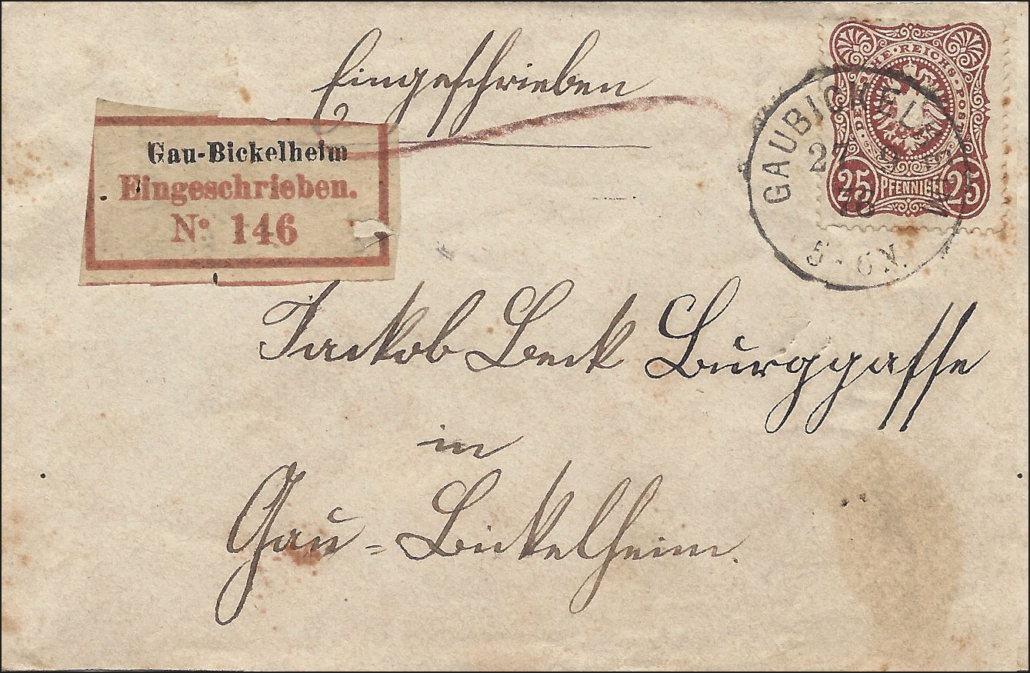 Eingeschrieben
Gau-Bickelheim
Eingeschrieben.
Nº 146
REICHS-POST
25 PFENNIGE 25
GAUBICKELH
27
78
5-6 N.
Jackob Beck Burggasse
in
Gau-Bickelheim.